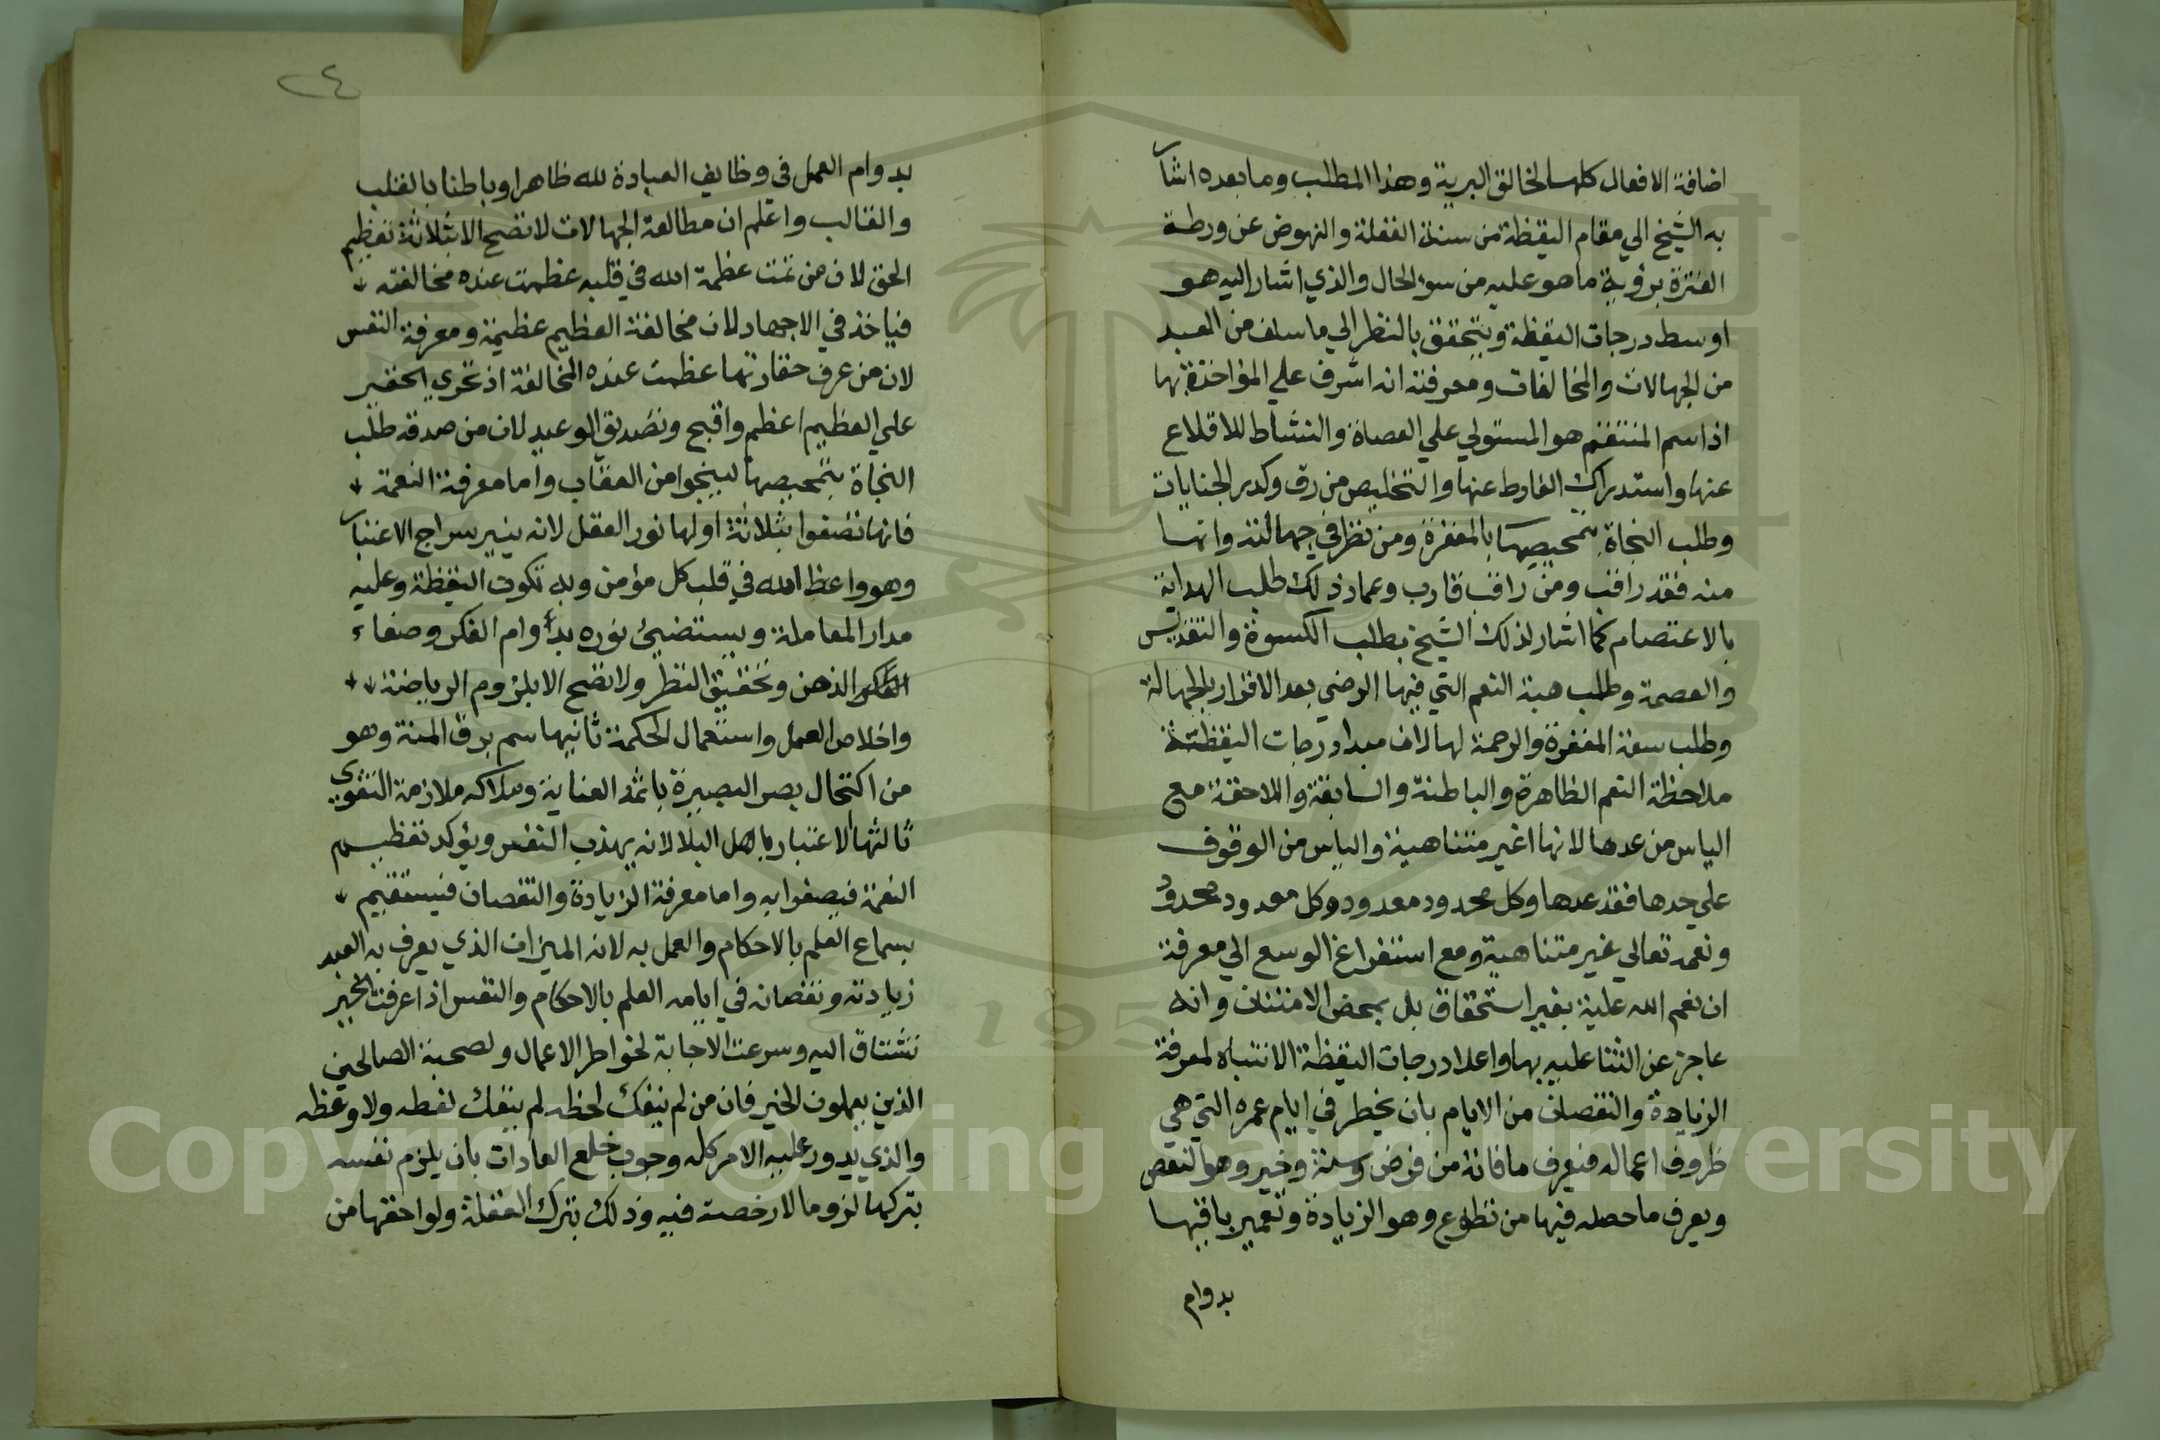 اضافة الافعال كلها لخالق البرية وهذا المطلب وما بعده اشار
به الشيخ الي مقام اليقظة من سنة الغفلة والنهوض عن ورطة
الفترة برؤية ما هو عليه من سوء الحال والذي اشار اليه هو
اوسط درجات اليقظة ويتحقق بالنظر الي ما سلف من العبد
من الجهالات والمخالفات ومعرفته انه اشرف علي المؤاخذة بها
اذ اسم المنتقم هو المستولي علي العصاة والنشاط للاقلاع
عنها واستدراك الفارط عنها والتخليص من رق وكدر الجنايات
وطلب النجاة بتمحيصها بالمغفرة ومن نظر في جهالته وانها
منه فقد راقب ومن راقب قارب وعماد ذلك طلب الهداية
بالاعتصام كما اشار لذلك الشيخ بطلب الكسوة والتقديس
والعصمة وطلب هبة النعم التي فيها الرضي بعد الاقرار بالجهالة
وطلب سعة المغفرة والرحمة لها لان مبدا درجات اليقظة
ملاحظة النعم الظاهرة والباطنة والسابقة واللاحقة مع
الياس من عدها لانها غير متناهية والياس من الوقوف
علي حدها فقد عدها وكل محدود معدود وكل معدود محدود
ونعمه تعالي غير متناهية ومع استفراغ الوسع الي معرفة
ان نعم الله عليه بغير استحقاق بل بمحض الامتنان وانه
عاجز عن الثنا عليه بها واعلا درجات اليقظة الانتباه لمعرفة
الزيادة والنقصان من الايام بان يخطر في ايام عمره التي هي
ظروف اعماله فيعرف ما فاته من فرض وسنة وخير وهو النقص
ويعرف ما حصله فيها من تطوع وهو الزيادة وتعمير باقيها
بدوام
٢٤
بدوام العمل في وظايف العبادة لله ظاهرا وباطنا بالقلب
والقالب واعلم ان مطالعة الجهالات لا تصح الا بثلاثة تعظيم
الحق لان من تمت عظمة الله في قلبه عظمت عنده مخالفته
فياخذ في الاجهاد لان مخالفة العظيم عظيمة ومعرفة النفس
لان من عرف حقارتها عظمت عنده المخالفة اذ تجري الحقير
علي العظيم اعظم واقبح وتصديق الوعيد لان من صدقه طلب
النجاة بتمحيصها لينجوا من العقاب واما معرفة النعمة
فانها تصفوا بثلاثة اولها نور العقل لانه ينير سراج الاعتبار
وهو واعظ الله في قلب كل مؤمن وبه تكون اليقظة وعليه
مدار المعاملة ويستضيئ نوره بدوام الفكر وصفاء
الذهن وتحقيق النظر ولا تصح الا بلزوم الرياضة
واخلاص العمل واستعمال الحكمة ثانيها سم برق المنة وهو
من اكتحال بصر البصيرة باثمد العناية وملاكه ملازمة التقوي
ثالثها الاعتبار باهل البلا لانه يهذب النفس ويؤكد تعظيم
النعمة فيصفوا به واما معرفة الزيادة والنقصان فيستقيم
بسماع العلم بالاحكام والعمل به لانه الميزان الذي يعرف به العبد
زيادته ونقصانه في ايامه العلم بالاحكام والنفس اذا عرفت الخير
تشتاق اليه وسرعت الاجابة لخواطر الاعمال ولصحبة الصالحين
الذين يعملون الخير فان من لم ينفك لحظه لم ينفك لفظه ولا وعظه
والذي يدور عليه الامر كله وجوب خلع العادات بان يلزم نفسه
بتركها لزوما لا رخصت فيه وذلك بترك الغفلة ولواحقها من
Copyright © King Saud University
195